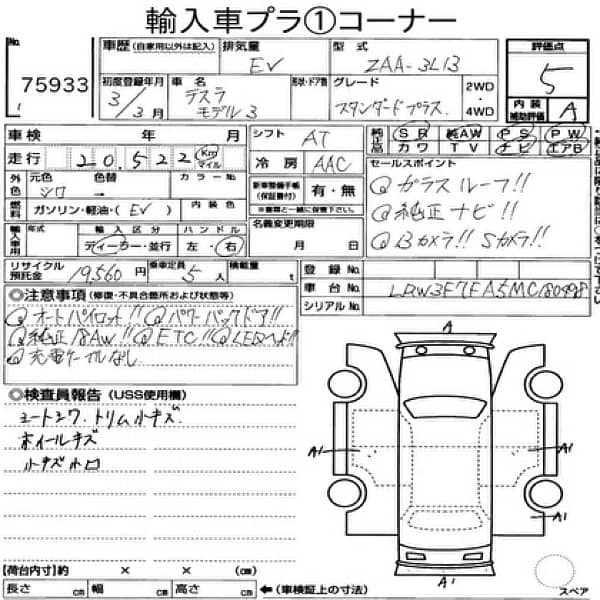 輸入車プラ①コーナー
No. 75933
車歴 (自家用以外は記入)
排気量 EV
型式 ZAA-3L13
評価点 5
内装補助評価 A
初度登録年月 3/3月
車名 テスラ モデル3
形状・ドア数
グレード スタンダードプラス
2WD・4WD
車検 年 月
シフト AT
純正品 SR 純AW PS PW
革 カワ TV ナビ エアB
走行 20,522 Km マイル
冷房 AAC
セールスポイント
外色 元色 シロ 色替 → カラーNo.
新車整備手帳(保証書付) 有・無
※書類と一緒に保管下さい。
@ガラスルーフ!!
燃料 ガソリン・軽油・(EV) 内装色
@純正ナビ!!
名義変更期限 月 日
輸入車用 年式 輸入区分 ディーラー・並行 ハンドル 左・右
@Bカメラ!! Sカメラ!!
リサイクル預託金 19,560円
乗車定員 5人
積載量 t
登録No.
車台No. LRW3E7EA5MC180898
シリアルNo.
◎注意事項 (修復・不具合箇所および状態等)
@オートパイロット!! @パワーバックドア!!
@純正18AW!! @ETC!! @LEDヘッド!!
@充電ケーブルなし
◎検査員報告 (USS使用欄)
シートシワ、トリム小キズ
ホイールキズ
小キズ小凹
A
A1
A1
A1
A1
スペア
【荷台内寸】約 × × (cm)
長さ cm 幅 cm 高さ cm ←(車検証上の寸法)